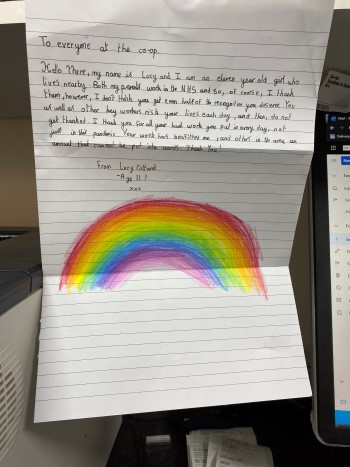 To everyone at the co-op.
Hello There, my name is Lucy and I am an eleven year old girl who
lives nearby. Both my parents work in the NHS and so, of course, I thank
them, however, I don't think you get even half of the recognition you deserve. You
as well as other key workers risk your lives each day, and then, do not
get thanked. I thank you for all your hard work you put in every day, not
just in this pandemic. Your work has benifitted me, and others in the area, an
amount that cannot be put into words. Thank You!
From Lucy
-Age 11!
xxx